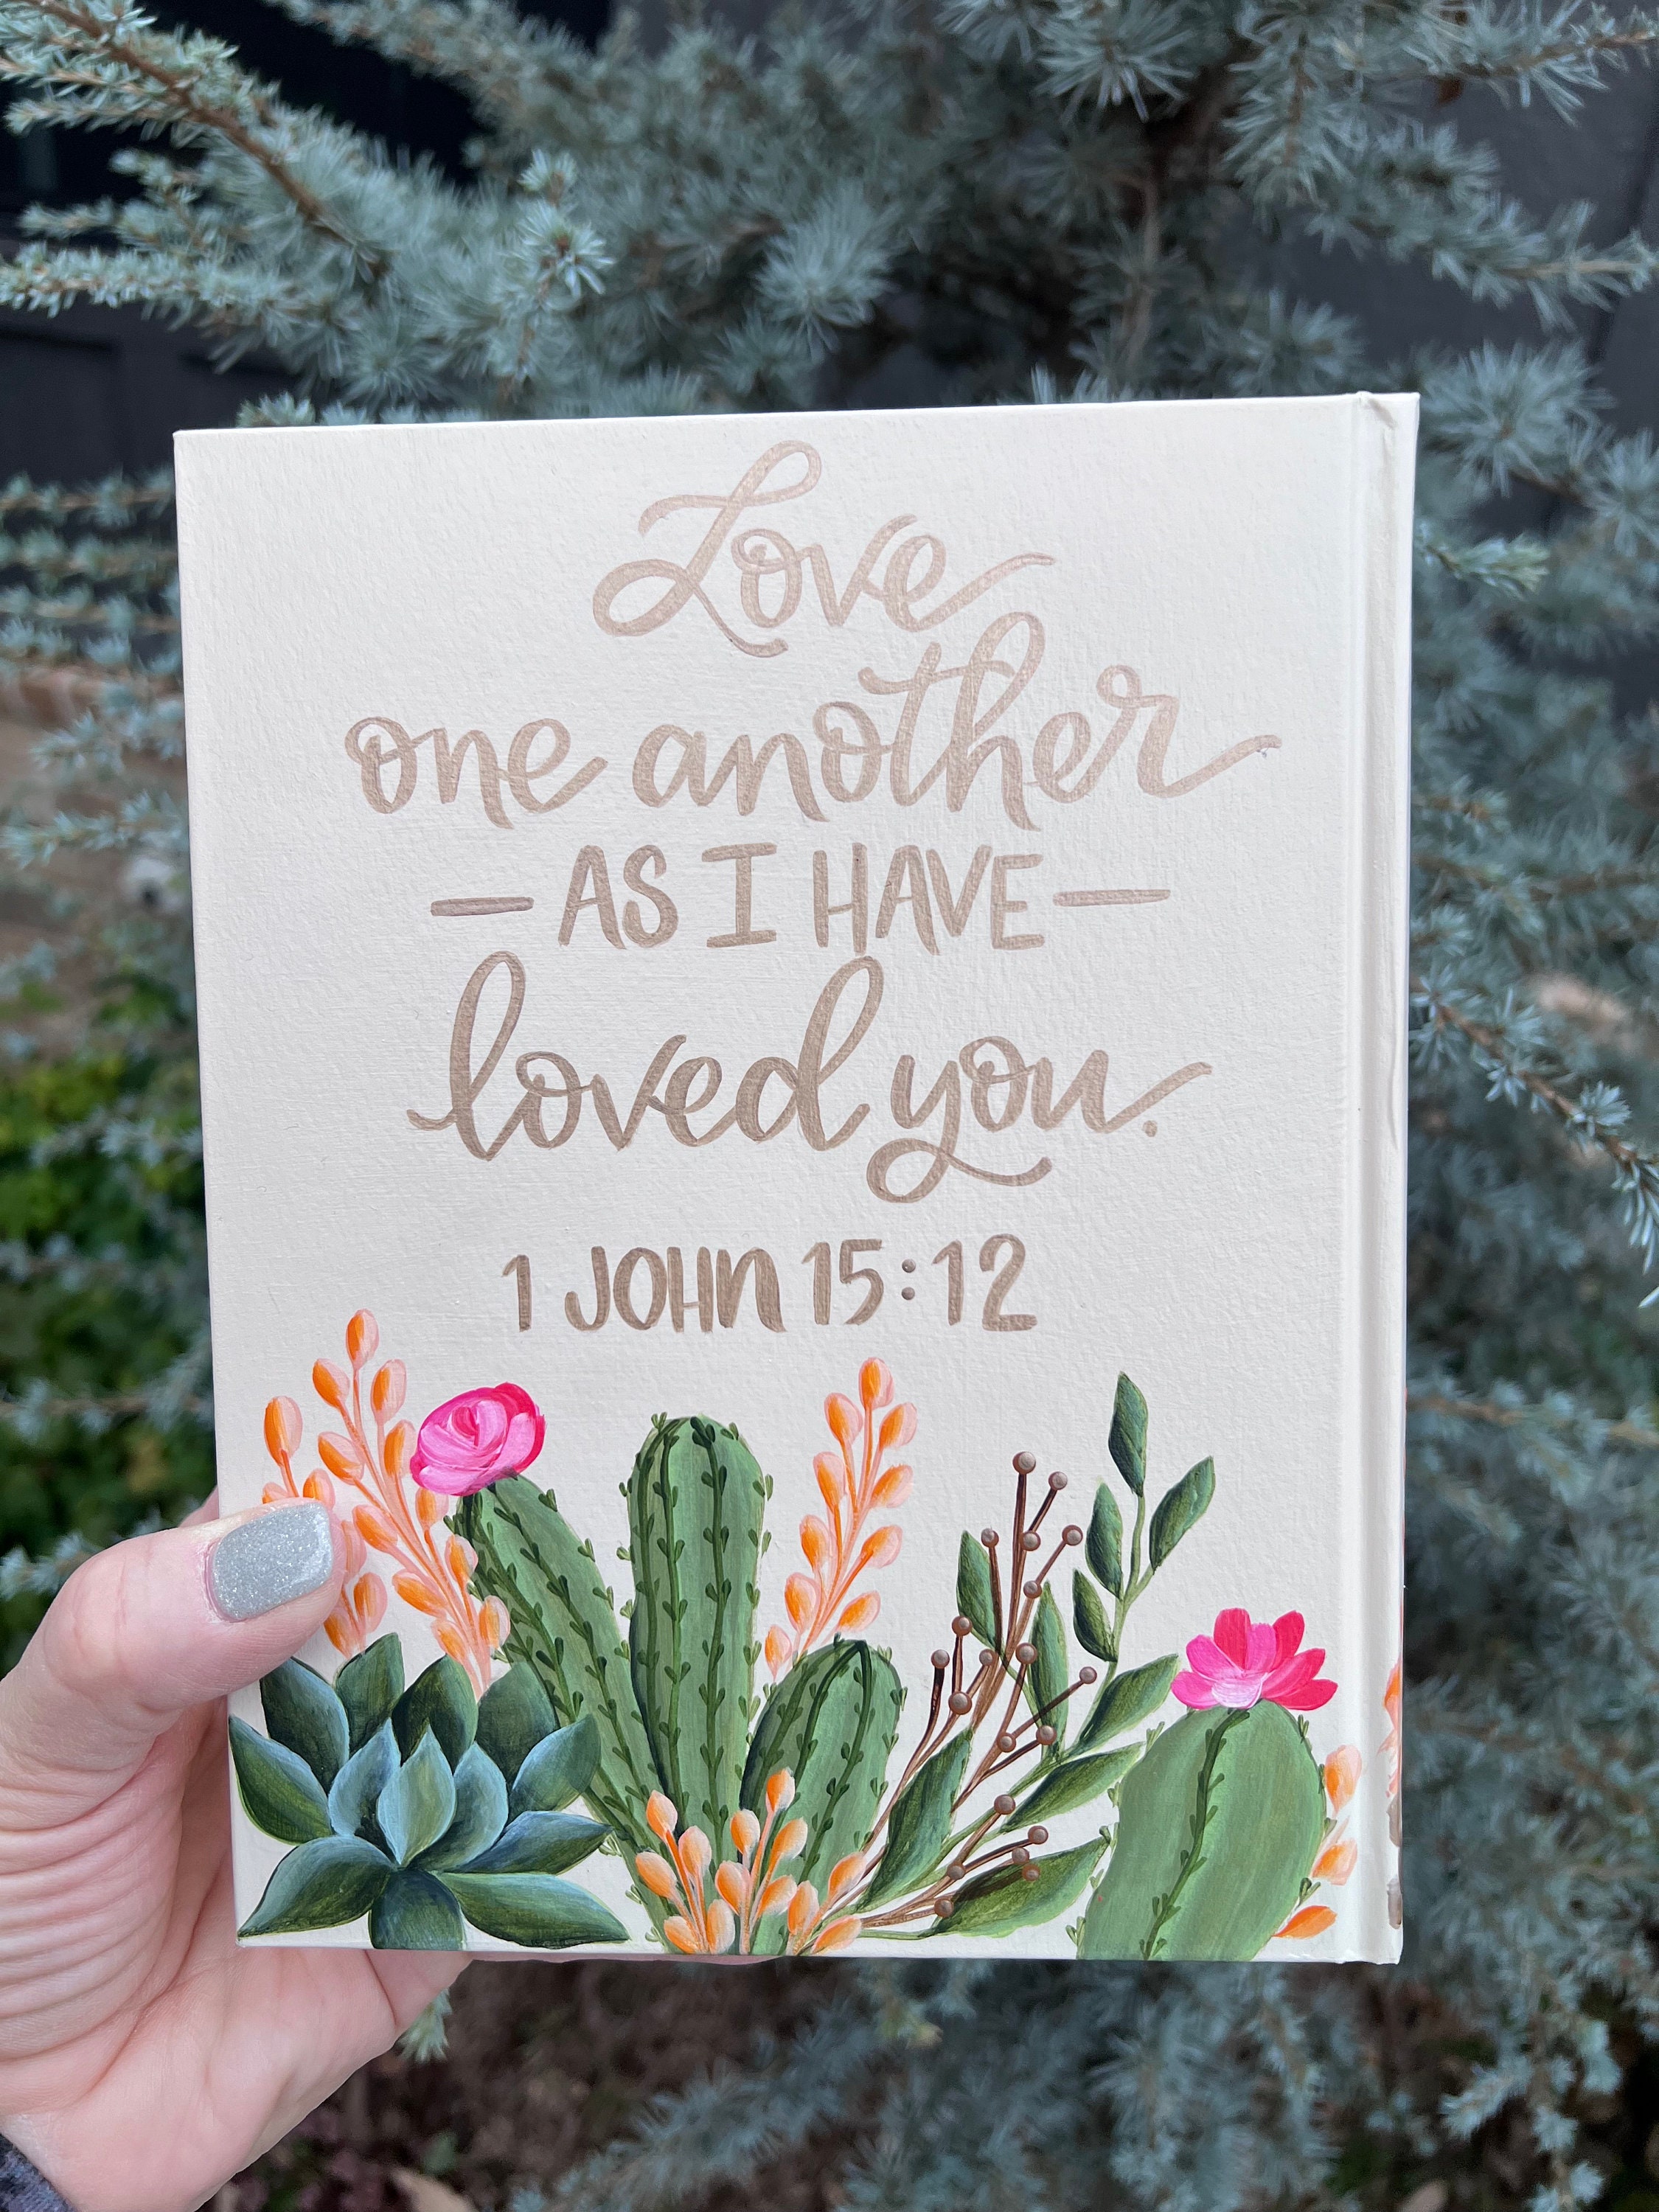 Love
one another
— AS I HAVE —
loved you.
1 JOHN 15:12